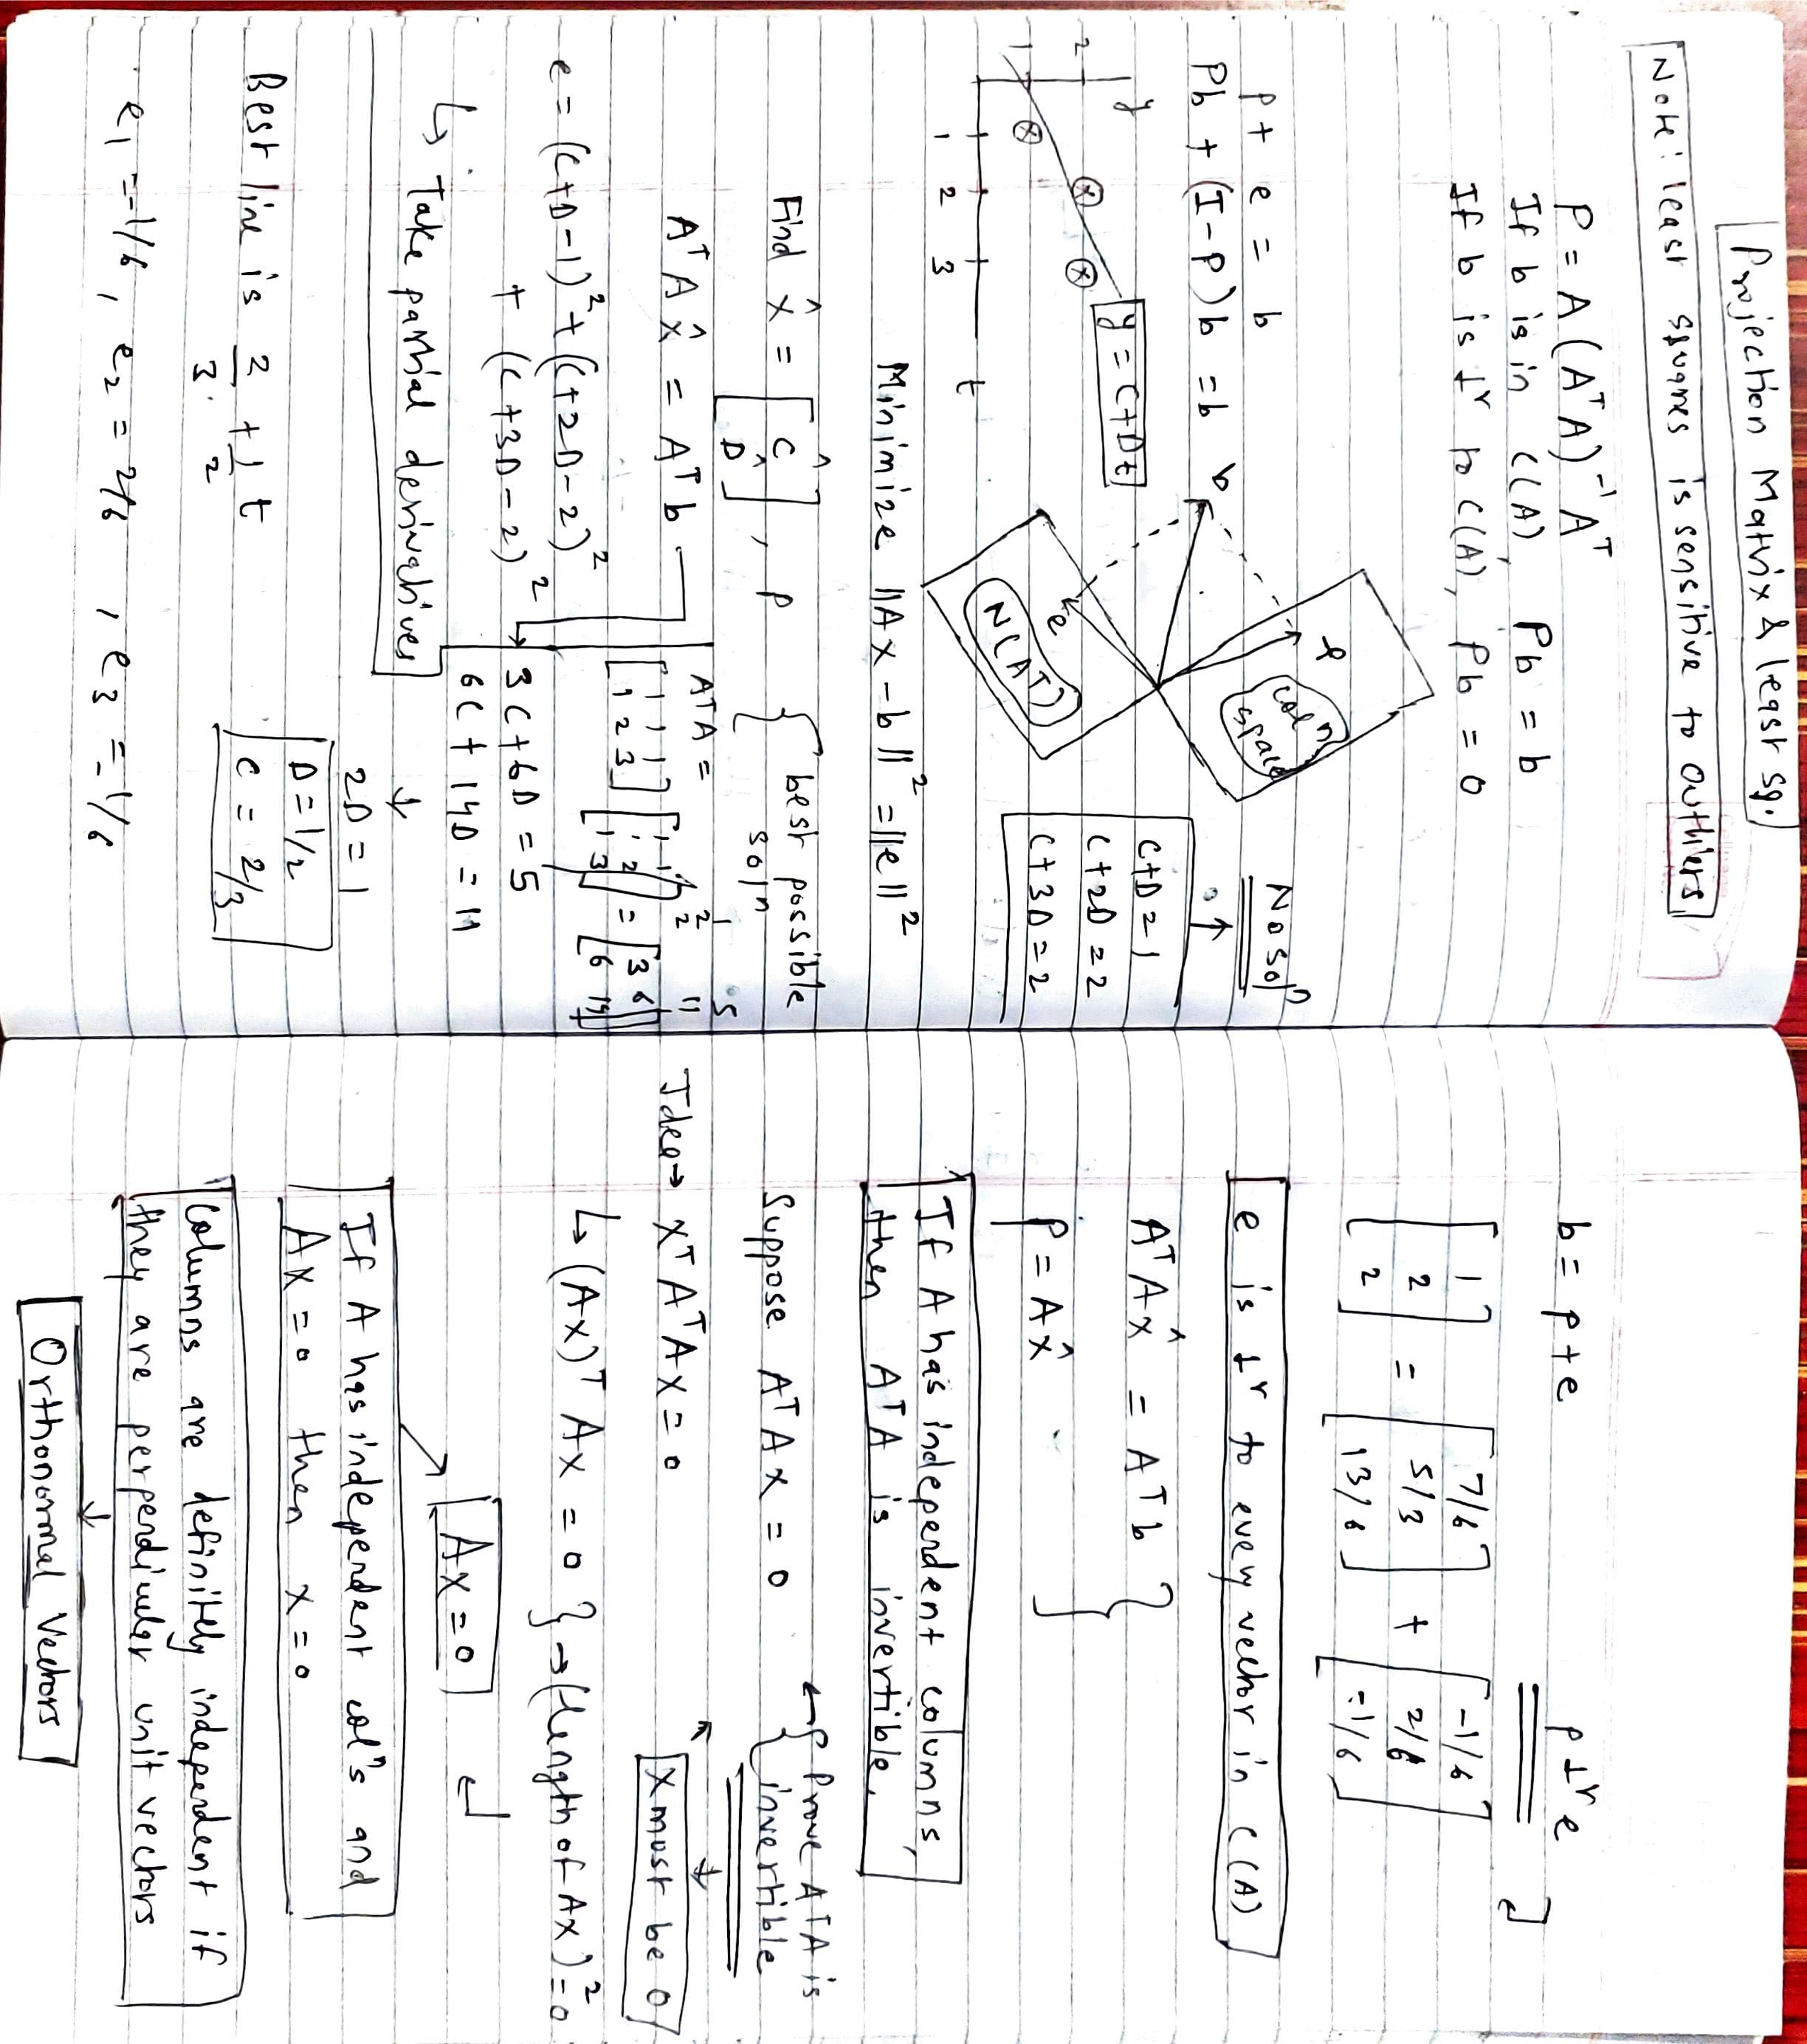 Projection Matrix & least sq.
Note: least squares is sensitive to outliers
P = A (AᵀA)⁻¹ Aᵀ
If b is in C(A), Pb = b
If b is ⊥ʳ to C(A), Pb = 0
p
colⁿ
space
p + e = b
Pb + (I-P) b = b
b
e
N(Aᵀ)
No solⁿ
C+D = 1
C+2D = 2
C+3D = 2
y
y = C+Dt
2
1
1 2 3
t
Minimize ||Ax - b||² = ||e||²
Find x̂ = [Ĉ D̂], p { best possible
solⁿ
AᵀA x̂ = Aᵀb
AᵀA =
1 5
2 11
2
[1 1 1 [1 1
1 2 3] 1 2
1 3] = [3 6
6 14]
e = (C+D-1)² + (C+2D-2)²
+ (C+3D-2)²
3C+6D = 5
6C + 14D = 11
↳ Take partial derivatives
↓
2D = 1
D = 1/2
C = 2/3
Best line is 2/3 + 1/2 t
e₁ = -1/6, e₂ = 2/6, e₃ = -1/6
b = p + e p ⊥ʳ e
[1 [7/6 [-1/6
2 = 5/3 + 2/6
2] 13/6] -1/6]
e is ⊥ʳ to every vector in C(A)
AᵀA x̂ = Aᵀ b
p = A x̂
If A has independent columns,
then AᵀA is invertible.
Suppose AᵀAx = 0 ← { Prove AᵀA is
invertible
↓
Idea → xᵀAᵀAx = 0
x must be 0
↳ (Ax)ᵀ Ax = 0 } → (length of Ax)² = 0
Ax = 0
If A has independent colⁿs and
Ax = 0 then x = 0
Columns are definitely independent if
they are perpendiculer unit vectors
↓
Orthonormal Vectors